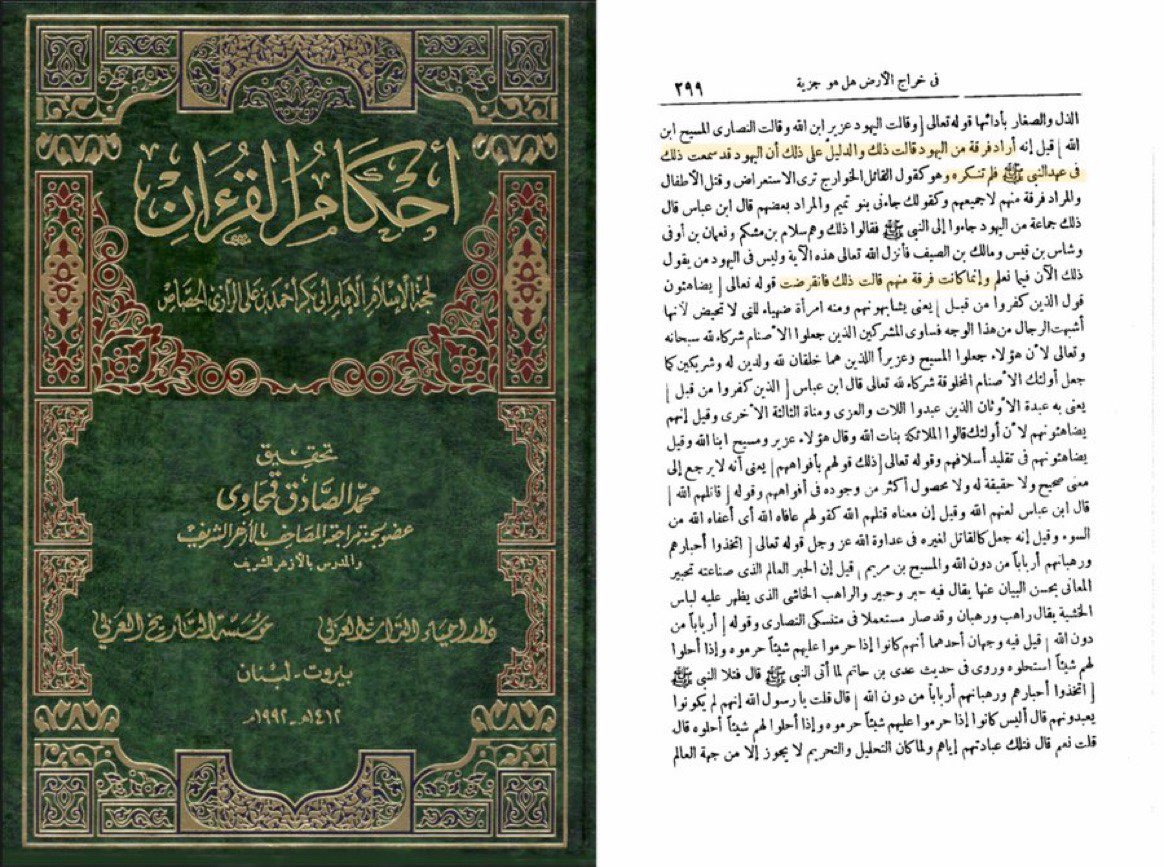 أحكام القرءان
لحجة الإسلام الإمام أبي بكر أحمد بن علي الرازي الجصاص
تحقيق
محمد الصادق قمحاوى
عضو لجنة مراجعة المصاحف بالأزهر الشريف
والمدرس بالأزهر الشريف
دار احياء التراث العربي
مؤسسة التاريخ العربي
بيروت - لبنان
١٤١٢هـ - ١٩٩٢م
فى خراج الأرض هل هو جزية
٢٩٩
الذل والصغار بأدائها قوله تعالى [ وقالت اليهود عزير ابن الله وقالت النصارى المسيح ابن
الله ] قيل إنه أراد فرقة من اليهود قالت ذلك والدليل على ذلك أن اليهود قد سمعت ذلك
فى عهد النبي ﷺ فلم تنكره وهو كقول القائل الخوارج ترى الاستعراض وقتل الأطفال
والمراد فرقة منهم لا جميعهم وكقولك جاءنى بنو تميم والمراد بعضهم قال ابن عباس قال
ذلك جماعة من اليهود جاءوا إلى النبي ﷺ فقالوا ذلك وهم سلام بن مشكم ونعمان بن أوفى
وشاس بن قيس ومالك بن الصيف فأنزل الله تعالى هذه الآية وليس فى اليهود من يقول
ذلك الآن فيما نعلم وإنما كانت فرقة منهم قالت ذلك فانقرضت قوله تعالى [ يضاهئون
قول الذين كفروا من قبل ] يعنى يشابهونهم ومنه امرأة ضهياء للتى لا تحيض لأنها
أشبهت الرجال من هذا الوجه فساوى المشركين الذين جعلوا الأصنام شركاء لله سبحانه
وتعالى لأن هؤلاء جعلوا المسيح وعزيراً اللذين هما خلقان لله ولدين له وشريكين كما
جعل أولئك الأصنام المخلوقة شركاء لله تعالى قال ابن عباس [ الذين كفروا من قبل ]
يعنى به عبدة الأوثان الذين عبدوا اللات والعزى ومناة الثالثة الأخرى وقيل إنهم
يضاهئونهم لأن أولئك قالوا الملائكة بنات الله وقال هؤلاء عزير ومسيح ابنا الله وقيل
يضاهئونهم فى تقليد أسلافهم وقوله تعالى [ ذلك قولهم بأفواههم ] يعنى أنه لا يرجع إلى
معنى صحيح ولا حقيقة له ولا محصول أكثر من وجوده فى أفواههم وقوله [ قاتلهم الله ]
قال ابن عباس لعنهم الله وقيل إن معناه قتلهم الله كقولهم عافاه الله أى أعفاه الله من
السوء وقيل إنه جعل كالقاتل لغيره فى عداوة الله عز وجل قوله تعالى [ اتخذوا أحبارهم
ورهبانهم أرباباً من دون الله والمسيح بن مريم ] قيل إن الحبر العالم الذى صناعته تحبير
المعانى بحسن البيان عنها يقال فيه حبر وحبير والراهب الخاشى الذى يظهر عليه لباس
الخشية يقال راهب ورهبان وقد صار مستعملا فى متنسكى النصارى وقوله [ أرباباً من
دون الله ] قيل فيه وجهان أحدهما أنهم كانوا إذا حرموا عليهم شيئاً حرموه وإذا أحلوا
لهم شيئاً استحلوه وروى فى حديث عدى بن حاتم لما أتى النبي ﷺ قال فتلا النبي ﷺ
[ اتخذوا أحبارهم ورهبانهم أرباباً من دون الله ] قال قلت يا رسول الله إنهم لم يكونوا
يعبدونهم قال أليس كانوا إذا حرموا عليهم شيئاً حرموه وإذا أحلوا لهم شيئاً أحلوه قال
قلت نعم قال فتلك عبادتهم إياهم ولما كان التحليل والتحريم لا يجوز إلا من جهة العالم